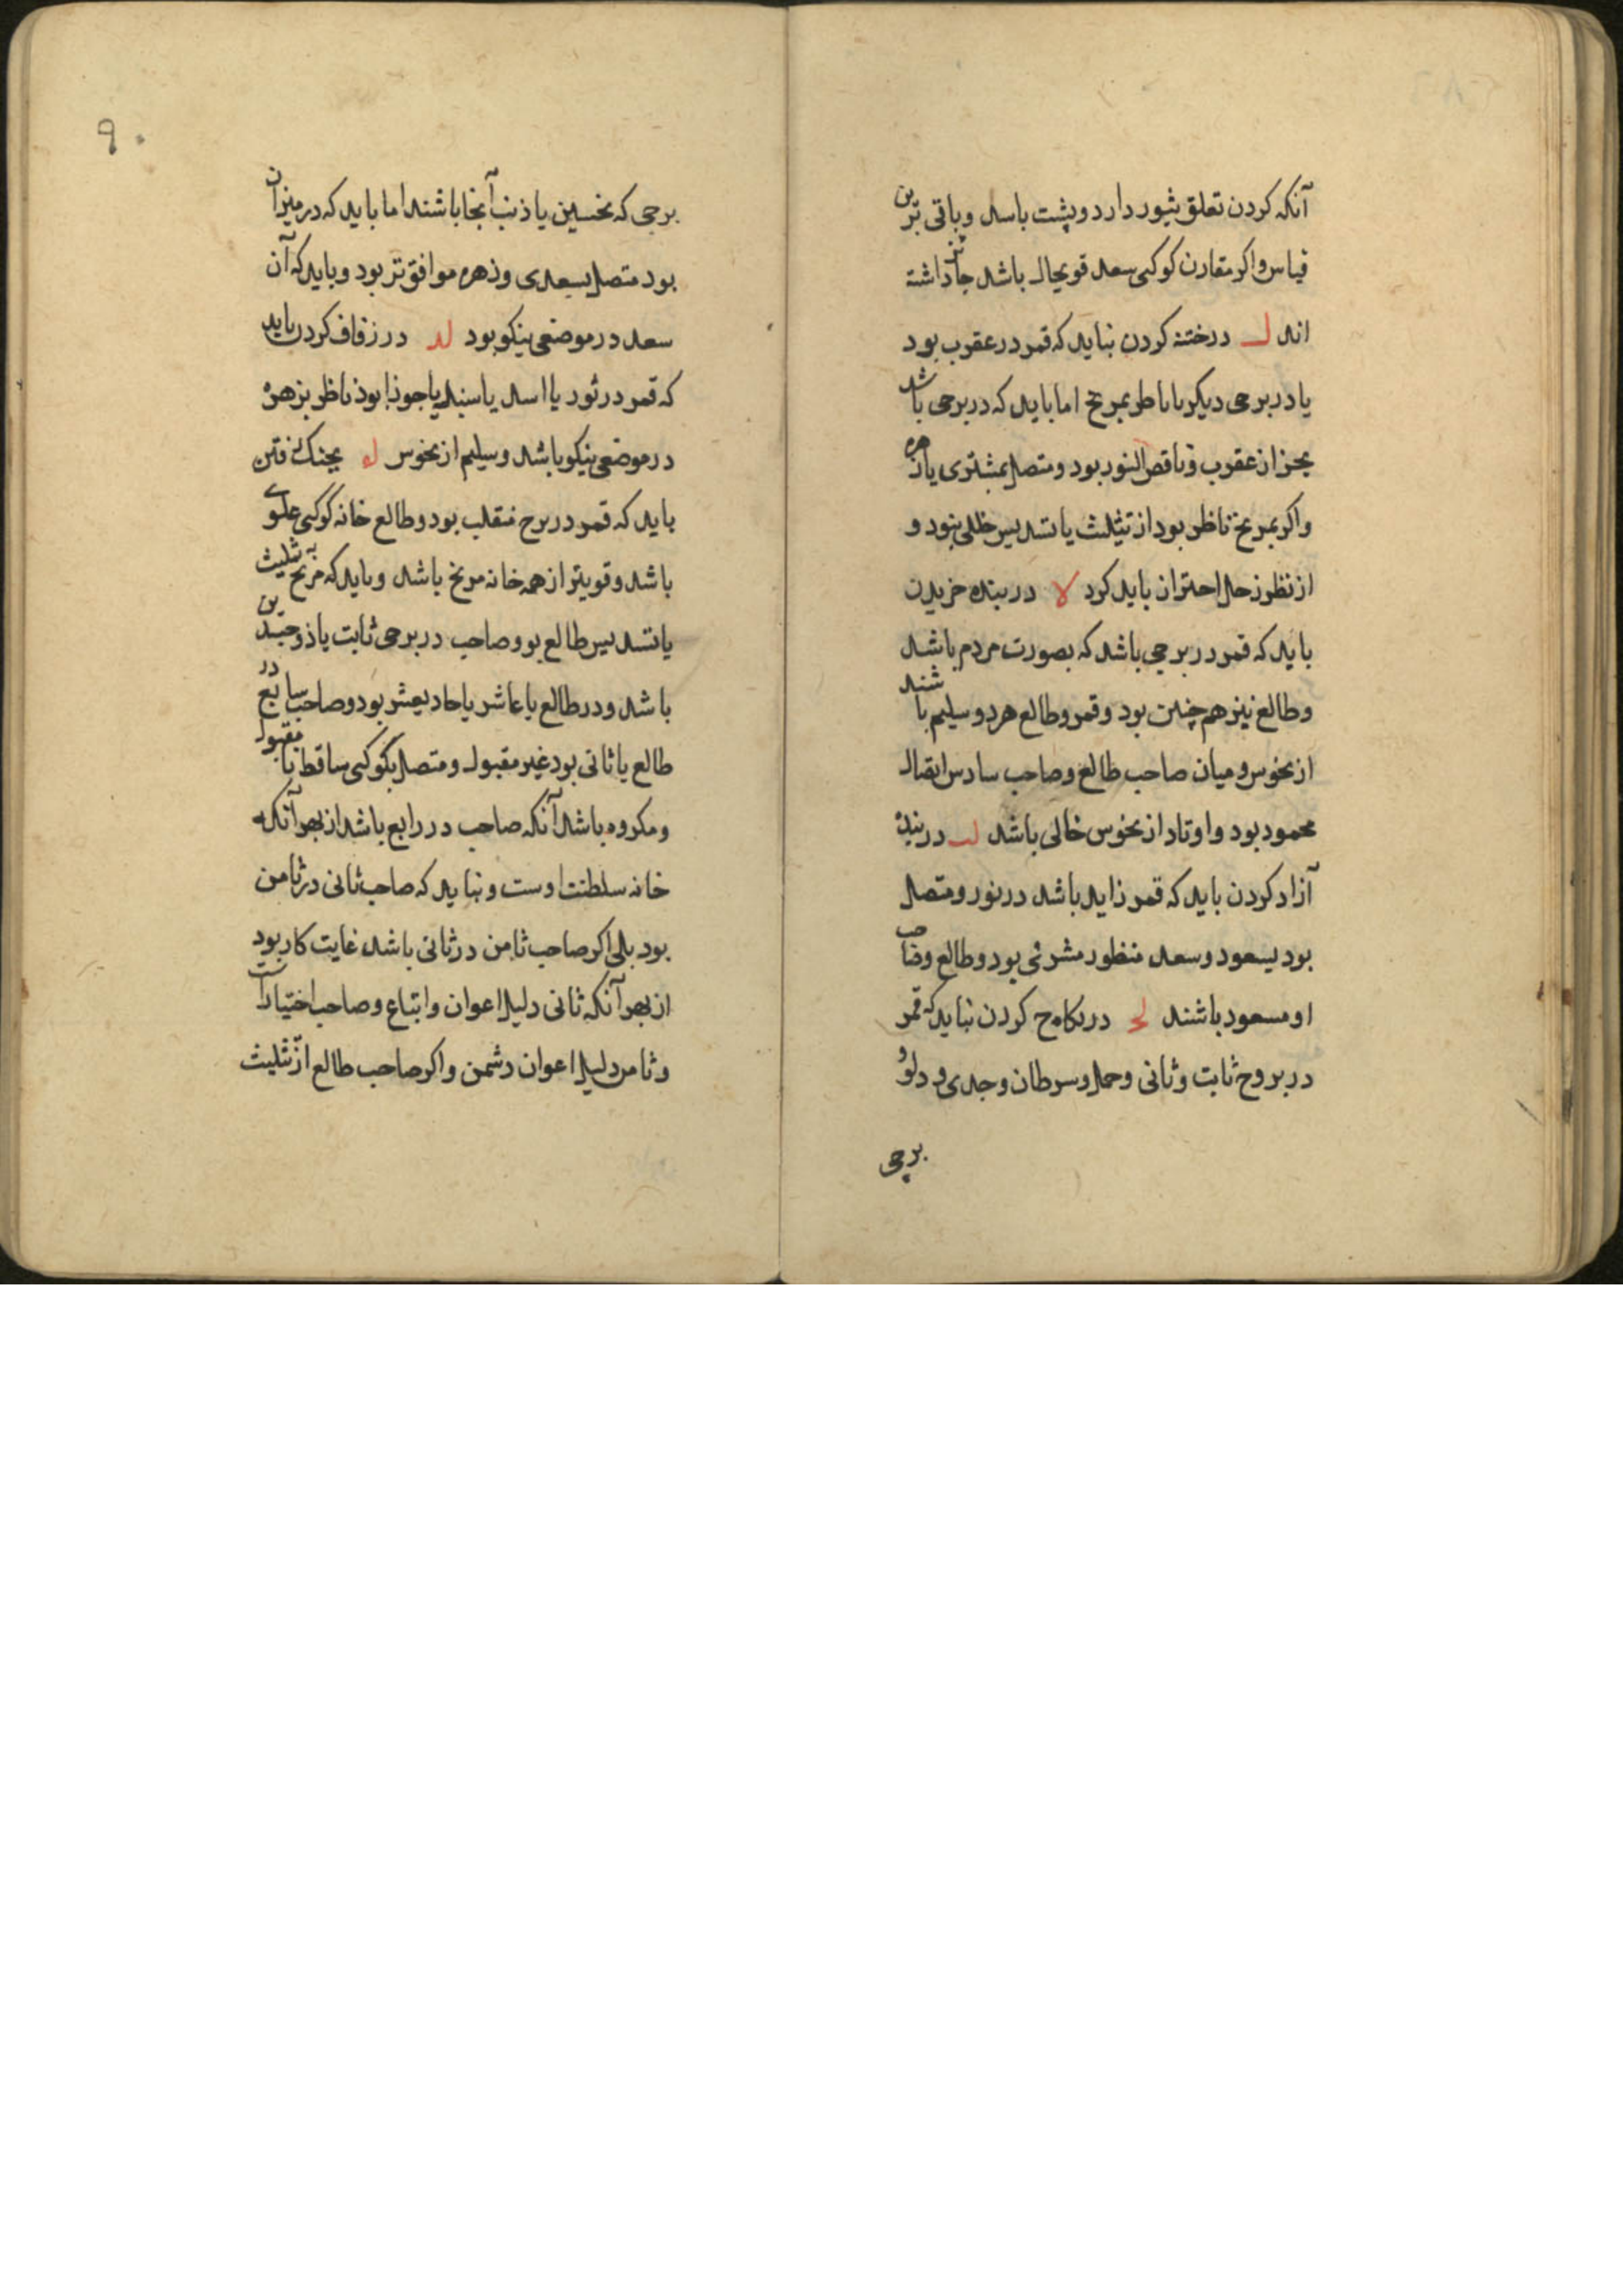 آنکه کردن تعلق بثور دارد و پشت باسد و باقی برین
قیاس و اکر مقارن کوکبی سعد قویحال باشد جایز داشته
اند ل در ختنه کردن نباید که قمر در عقرب بود
یا در برجی دیکر باناظر بمریخ اما باید که در برجی باشد
بجز از عقرب و ناقص النور بود و متصل بمشتری یا زهره
واکر بمریخ ناظر بود از تثلیث یا تسدیس خللی نبود و
از نظر زحل احتراز باید کرد لا در بنده خریدن
باید که قمر در برجی باشد که بصورت مردم باشد
وطالع نیز هم چنین بود و قمر و طالع هردو سلیم باشند
از نحوس و میان صاحب طالع و صاحب سادس اتصال
محمود بود و اوتاد از نحوس خالی باشد لب در بنده
آزاد کردن باید که قمر زاید باشد در نور و متصل
بود بسعود وسعد منظور مشرقی بود و طالع وصاحب
او مسعود باشند لج در نکاح کردن نباید که قمر
در بروج ثابت و ثانی وحمل و سرطان و جدی و دلو و
برجی
۹۰
برجی که نحسین یا ذنب آنجا باشند اما باید که در میزان
بود متصل بسعدی و زهره موافق تر بود و باید که آن
سعد در موضعی نیکو بود لد در زفاف کردن باید
که قمر در ثور یا اسد یا سنبله یا جوزا بود ناظر بزهره
در موضعی نیکو باشد وسلیم از نحوس له بجنک رفتن
باید که قمر در برج منقلب بود و طالع خانه کوکبی علوی
باشد و قویتر از همه خانه مریخ باشد و باید که مریخ به تثلیث
یا تسدیس طالع بود و صاحب در برجی ثابت یا ذوجسدین
باشد و در طالع یا عاشر یا حادیعشر بود و صاحب سابع در
طالع یا ثانی بود غیر مقبول و متصل بکوکبی ساقط نامقبول
و مکروه باشد آنکه صاحب در رابع باشد از بهر آنکه
خانه سلطنت اوست و نباید که صاحب ثانی در ثامن
بود بلی اکر صاحب ثامن در ثانی باشد غایت کار بود
از بهر آنکه ثانی دلیل اعوان و اتباع وصاحب اختیارات
وثامن دلیل اعوان دشمن و اکر صاحب طالع از تثلیث